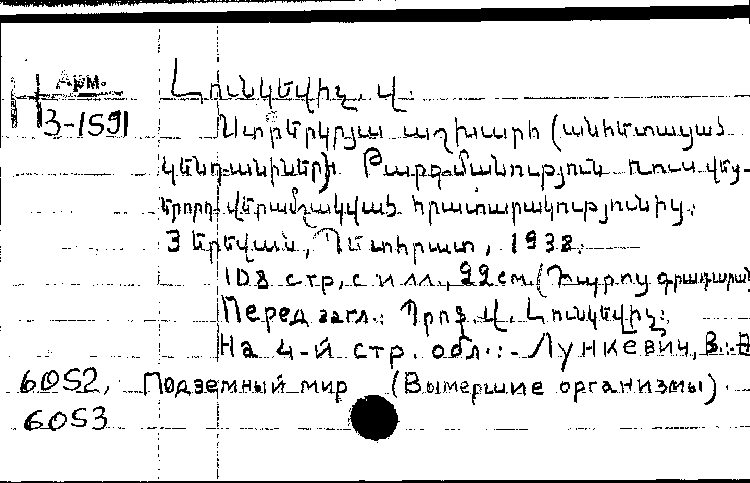 Арм.
3-1591
Լունկեվիչ, Վ.
Ստորերկրյա աշխարհ (անհետացած
կենդանիներ) Թարգմանություն ռուս վեց-
երորդ վերամշակված հրատարակությունից.
Յերեվան, Պետհրատ, 1938.
108 стр, с илл., 22 см. (Դպրոց գրադարան
Перед загл.: Պրոֆ. Վ. Լունկեվիչ.
На 4-й стр. обл.: - Лункевич, В.
6052, Подземный мир (Вымершие организмы).
6053